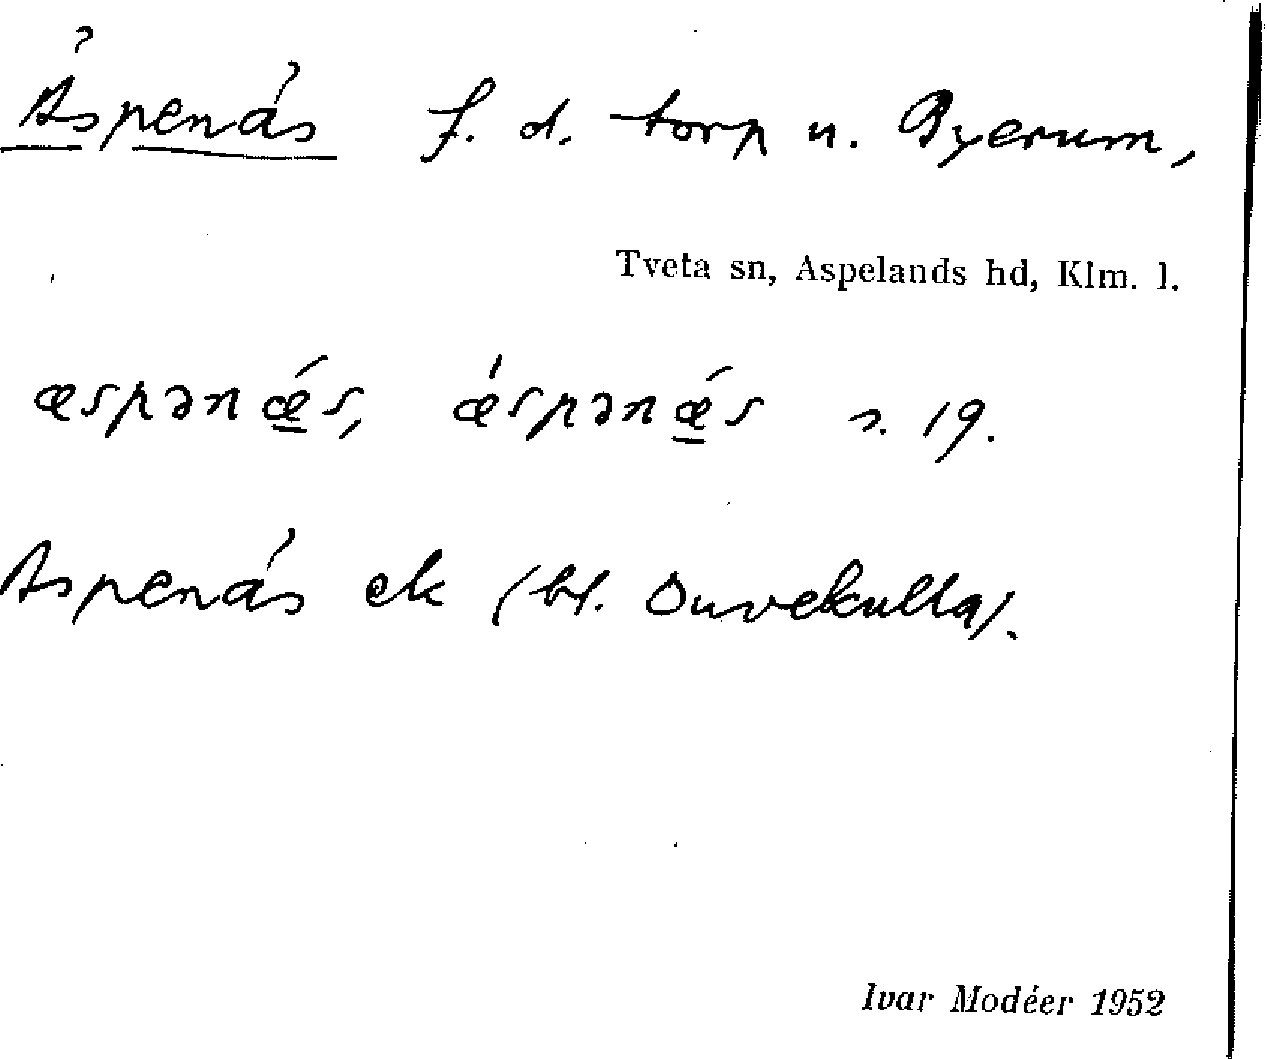 Äspenäs f. d. torp u. Byerum,
Tveta sn, Aspelands hd, Klm. l.
æspənǽ̲s, ǽspənǽ̲s s. 19.
Äspenäs ek (bl. Duvekulla).
Ivar Modéer 1952